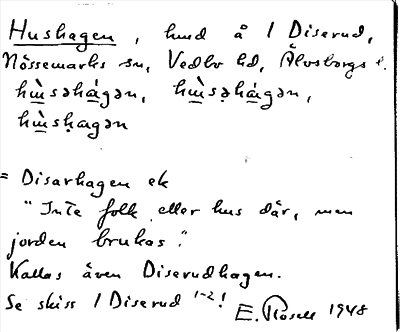 Hushagen, hmd å 1 Diserud,
Nössemarks sn, Vedbo hd, Älvsborgs l.
hɯ̀sәhágәn, hɯ̀sәhágәn,
hɯ̀shagәn
= Disarhagen ek
"Inte folk eller hus där, men
jorden brukas."
Kallas även Diserudhagen.
Se skiss 1 Diserud 1-2!
E. Rosell 1948